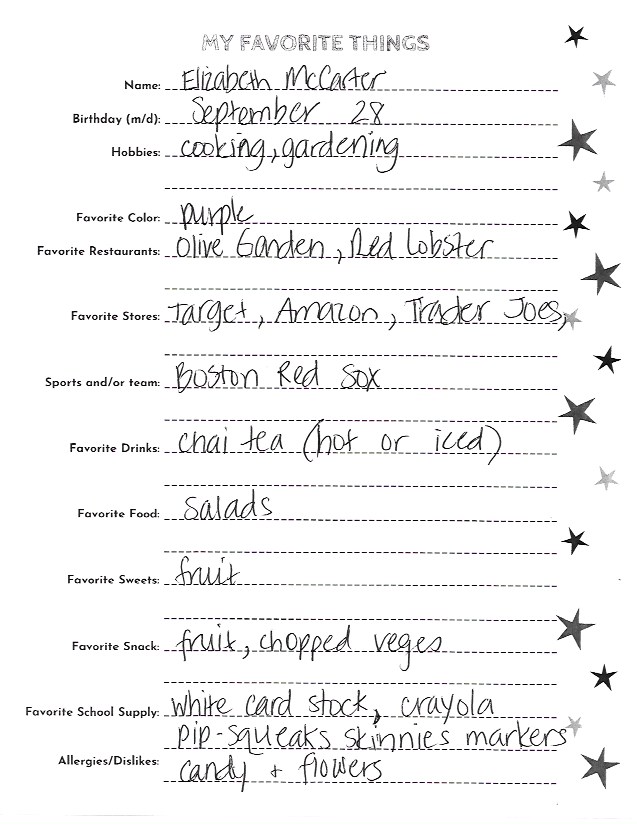 MY FAVORITE THINGS
Name: Elizabeth McCarter
Birthday (m/d): September 28
Hobbies: cooking, gardening
Favorite Color: purple
Favorite Restaurants: Olive Garden, Red Lobster
Favorite Stores: Target, Amazon, Trader Joes,
Sports and/or team: Boston Red Sox
Favorite Drinks: chai tea (hot or iced)
Favorite Food: salads
Favorite Sweets: fruit
Favorite Snack: fruit, chopped veges
Favorite School Supply: white card stock, crayola
pip-squeaks skinnies markers
Allergies/Dislikes: candy + flowers